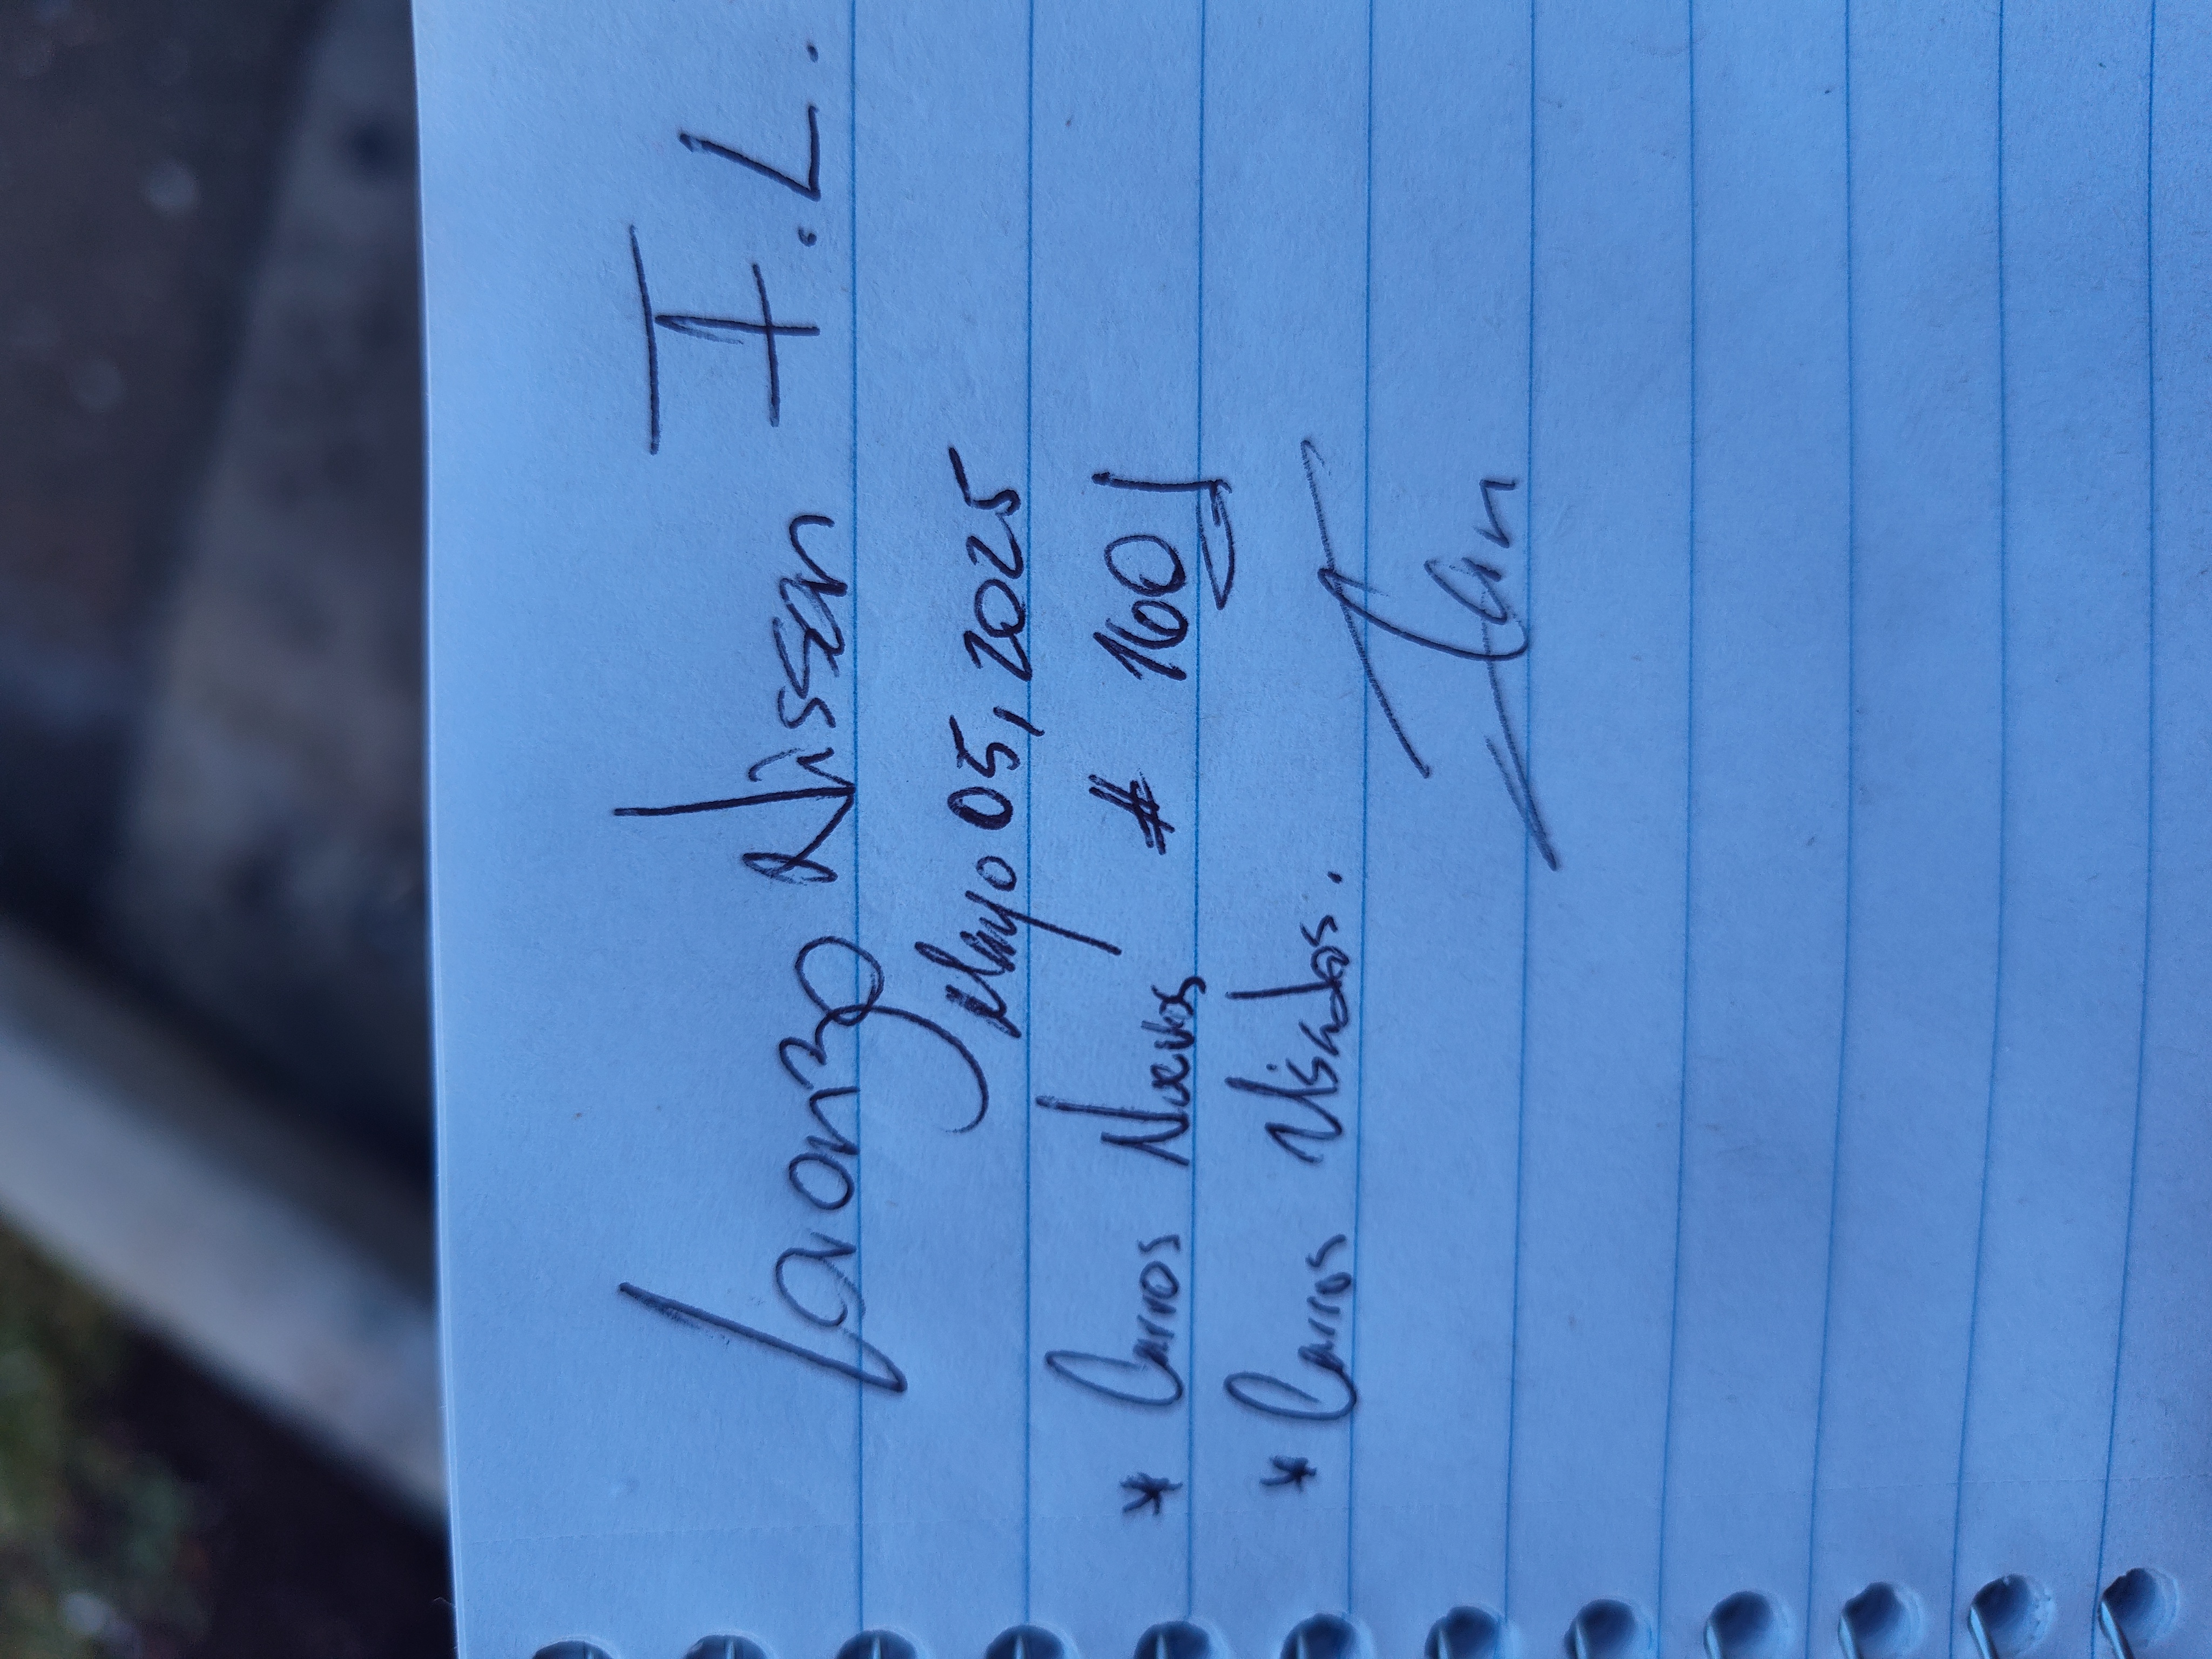 Lorenzo Nissan I.L.
Mayo 05, 2025
* Carros Nuevos # 160
* Carros Usados.
Ian